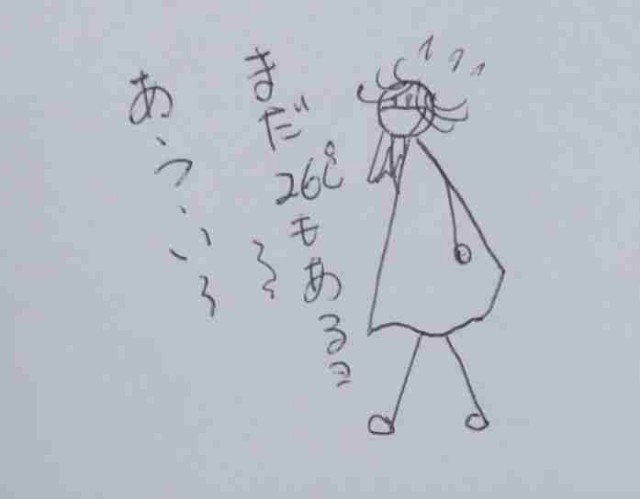 まだ26℃もある
あ、つ、い〜